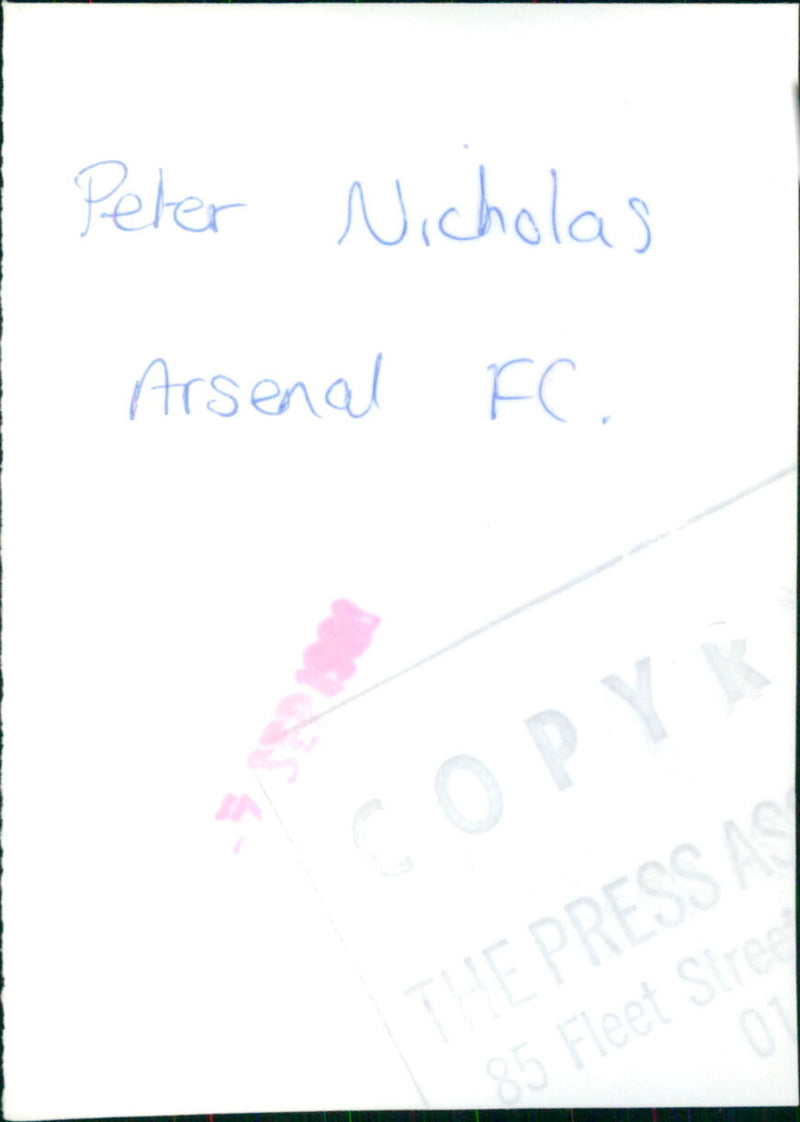 Peter Nicholas
Arsenal FC.
COPYR
THE PRESS ASS
85 Fleet Street
01